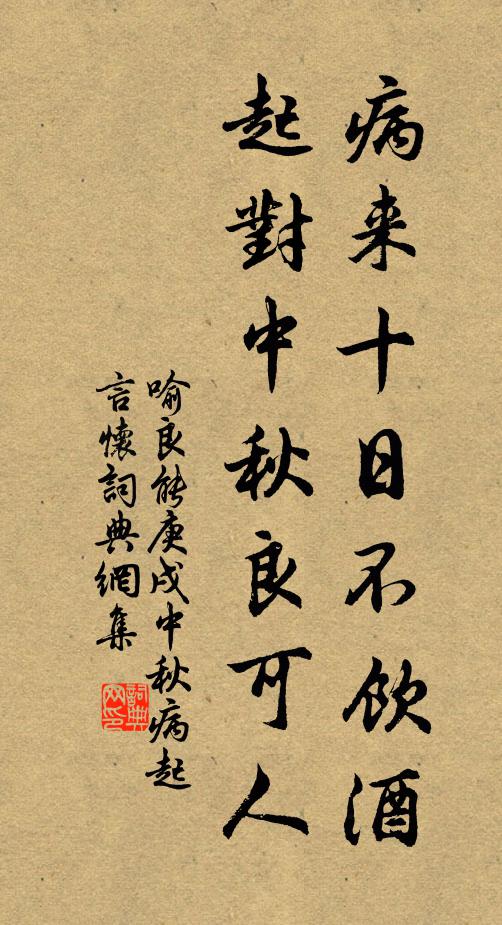 病来十日不饮酒
起對中秋良可人
喻良能庚戌中秋病起
言懷詞典網集
詞典網印